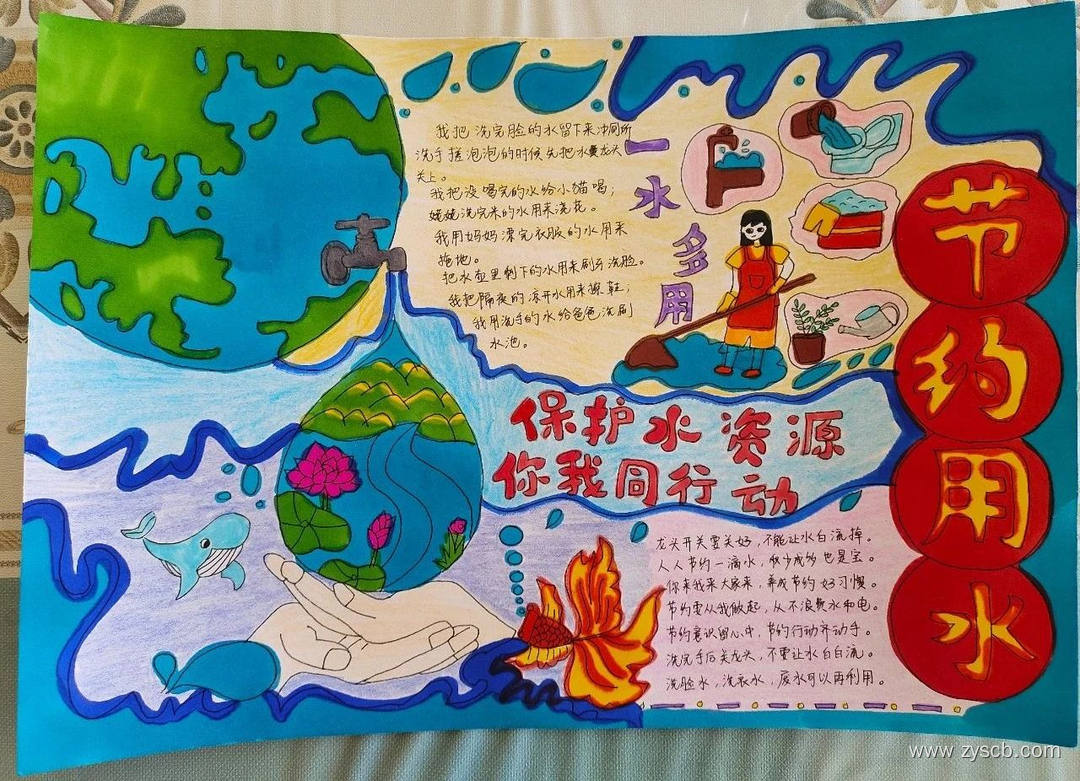 节约用水
一水多用
我把洗完脸的水留下来冲厕所
洗手搓泡泡的时候先把水龙头
关上。
我把没喝完的水给小猫喝；
姥姥洗完米的水用来浇花。
我用妈妈漂完衣服的水用来
拖地。
把水壶里剩下的水用来刷牙洗脸。
我把隔夜的凉开水用来擦鞋；
我用洗手的水给爸爸洗刷
水池。
保护水资源
你我同行动
龙头开关要关好，不能让水白流掉。
人人节约一滴水，积少成多也是宝。
你来我来大家来，养成节约好习惯。
节约要从我做起，从不浪费水和电。
节约意识留心中，节约行动齐动手。
洗完手后关龙头，不要让水白白流。
洗脸水，洗衣水，废水可以再利用。
www.zyscb.com